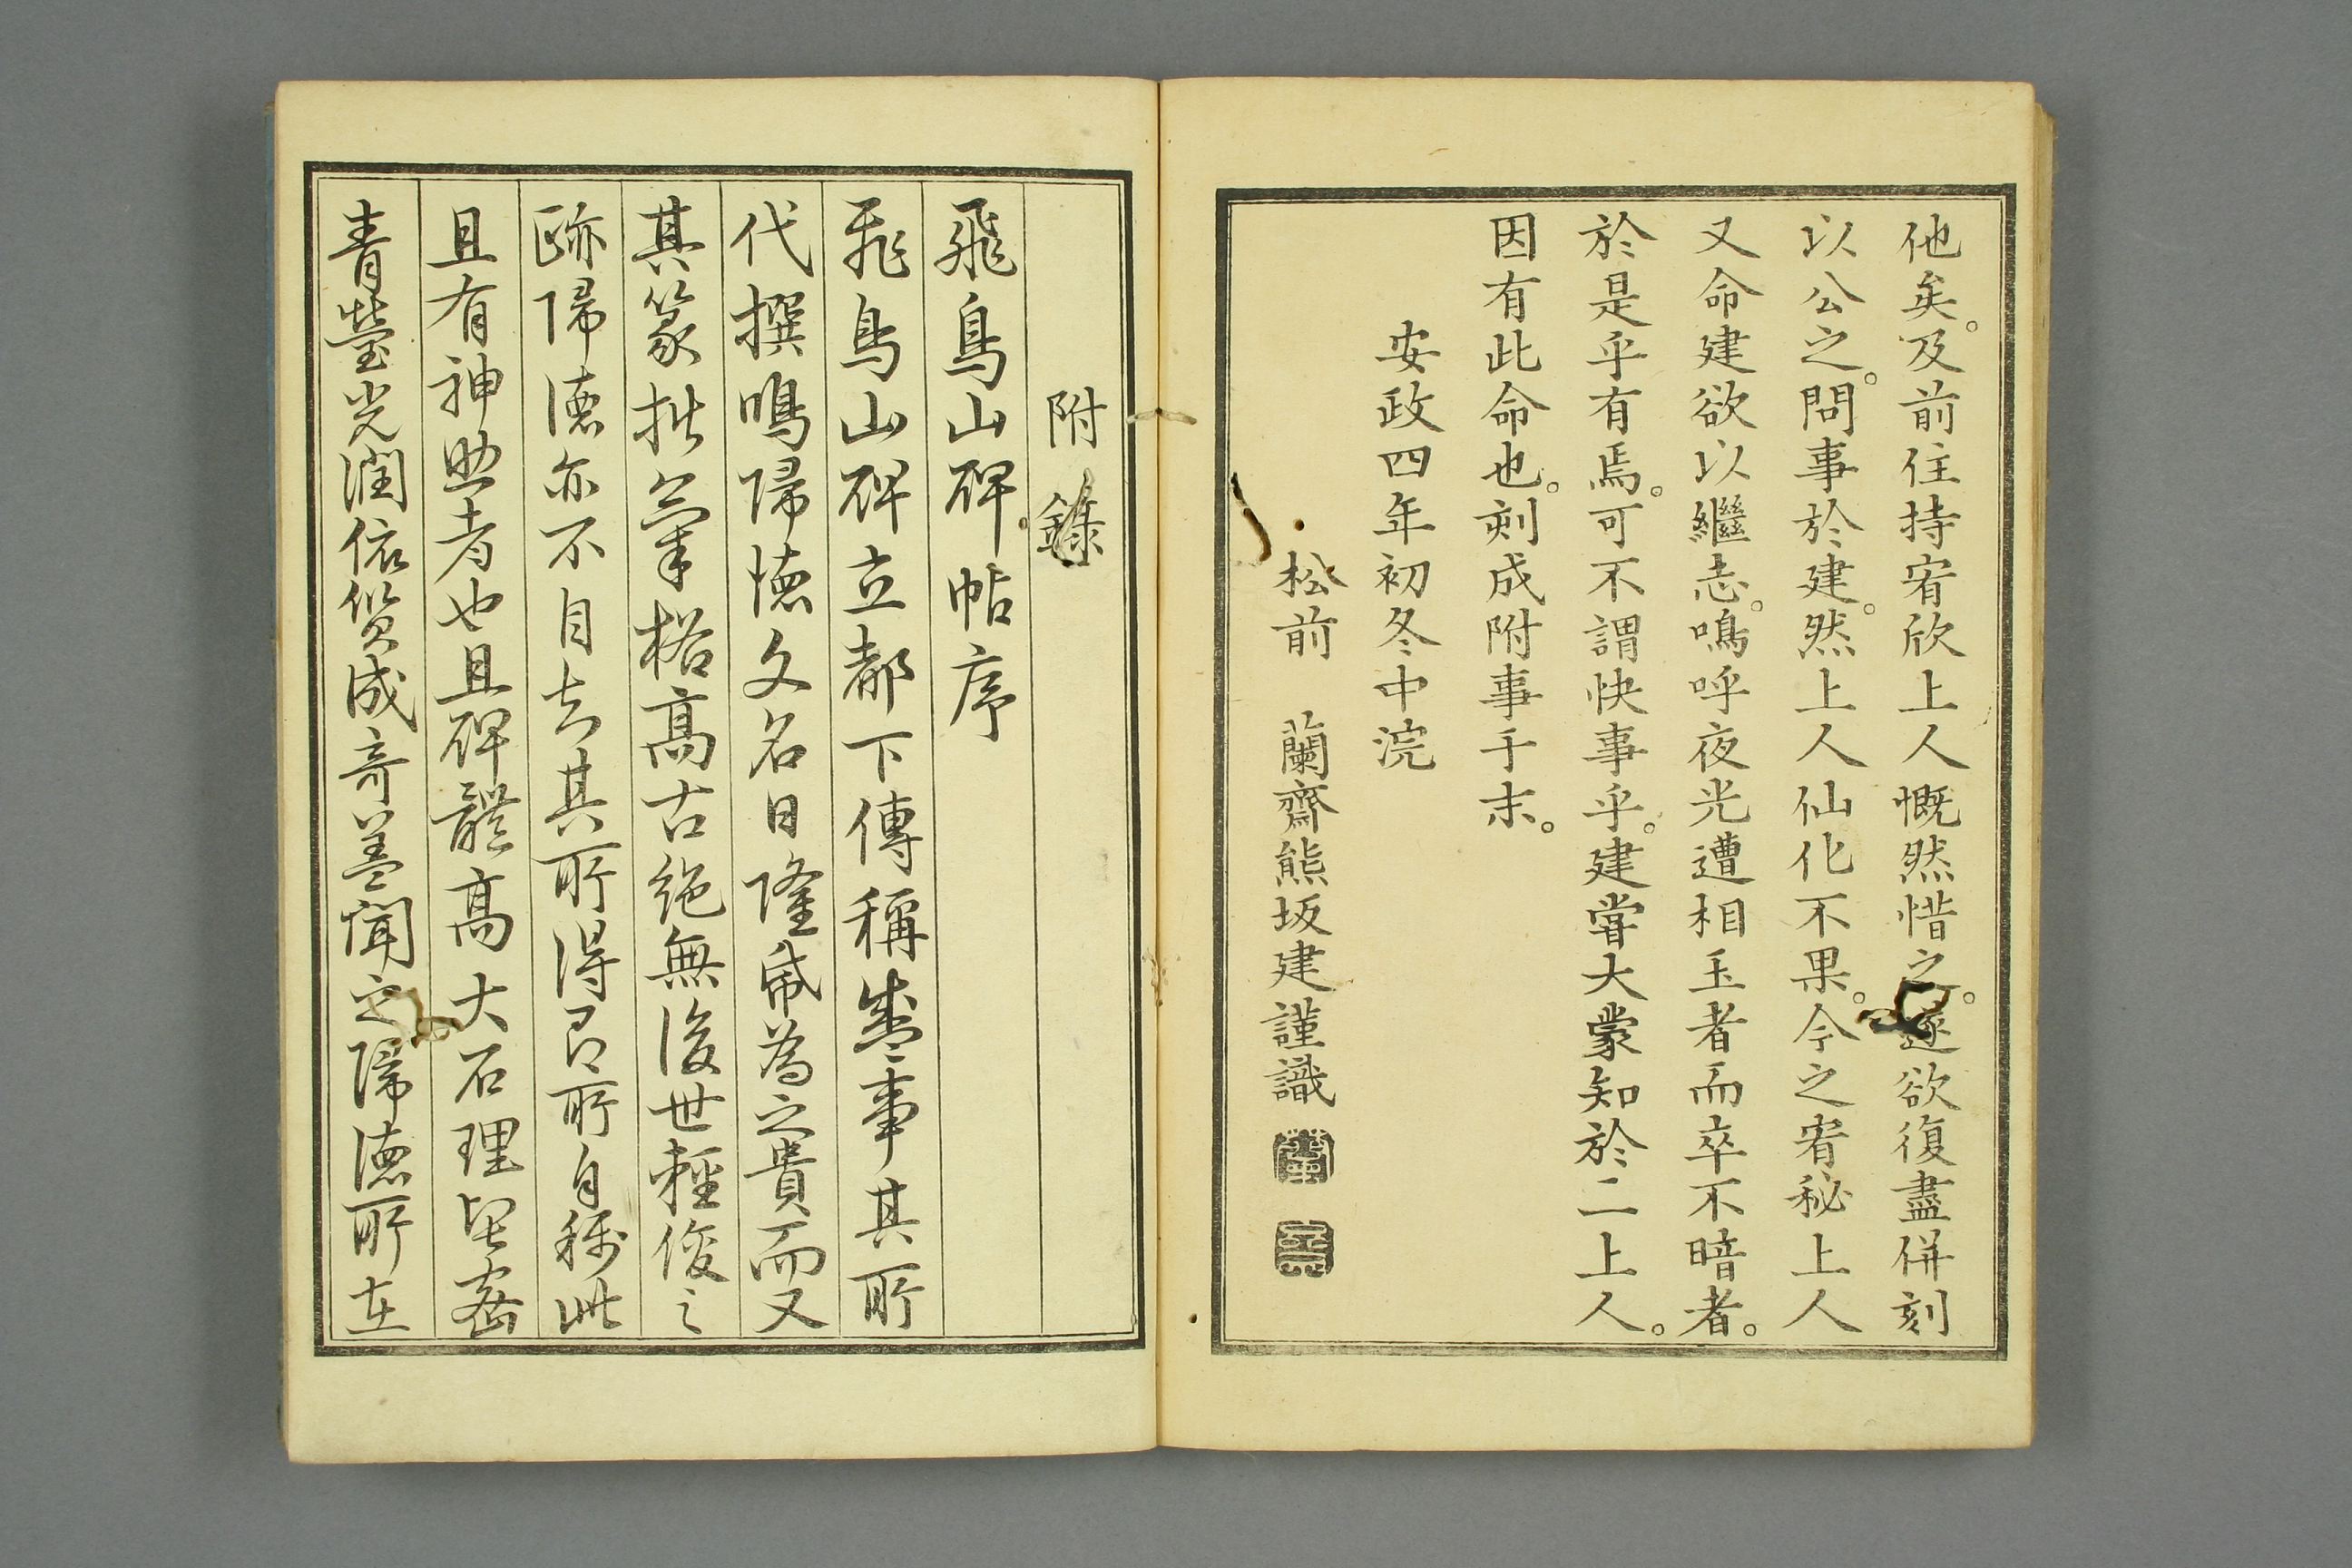 他矣。及前住持宥欣上人慨然惜之。遂欲復盡併刻
以公之。問事於建。然上人仙化不果。今之宥秘上人
又命建欲以繼志。鳴呼夜光遭相玉者而卒不暗者。
於是乎有焉。可不謂快事乎。建嘗大蒙知於二上人。
因有此命也。刻成附事于末。
安政四年初冬中浣
松前 蘭齋熊坂建謹識
附錄
飛鳥山碑帖序
飛鳥山碑立都下傳稱盛事其所
代撰鳴歸德文名日隆帋為之貴而又
其篆拙筆格高古絶無後世輕俊之
跡歸德亦不自去其所得即所自稱此
且有神助者也且碑體高大石理堅密
青瑩光潤依質成奇蓋聞之歸德所在